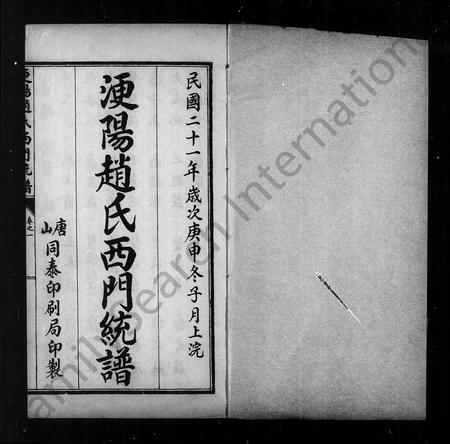 民國二十一年歲次庚申冬子月上浣
浭陽趙氏西門統譜
唐山同泰印刷局印製
浭陽趙氏西門統譜
卷之一
FamilySearch International